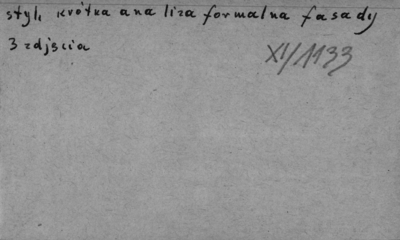 styl, krótka ana liza formalna fasady
3 zdjęcia
XI/1133